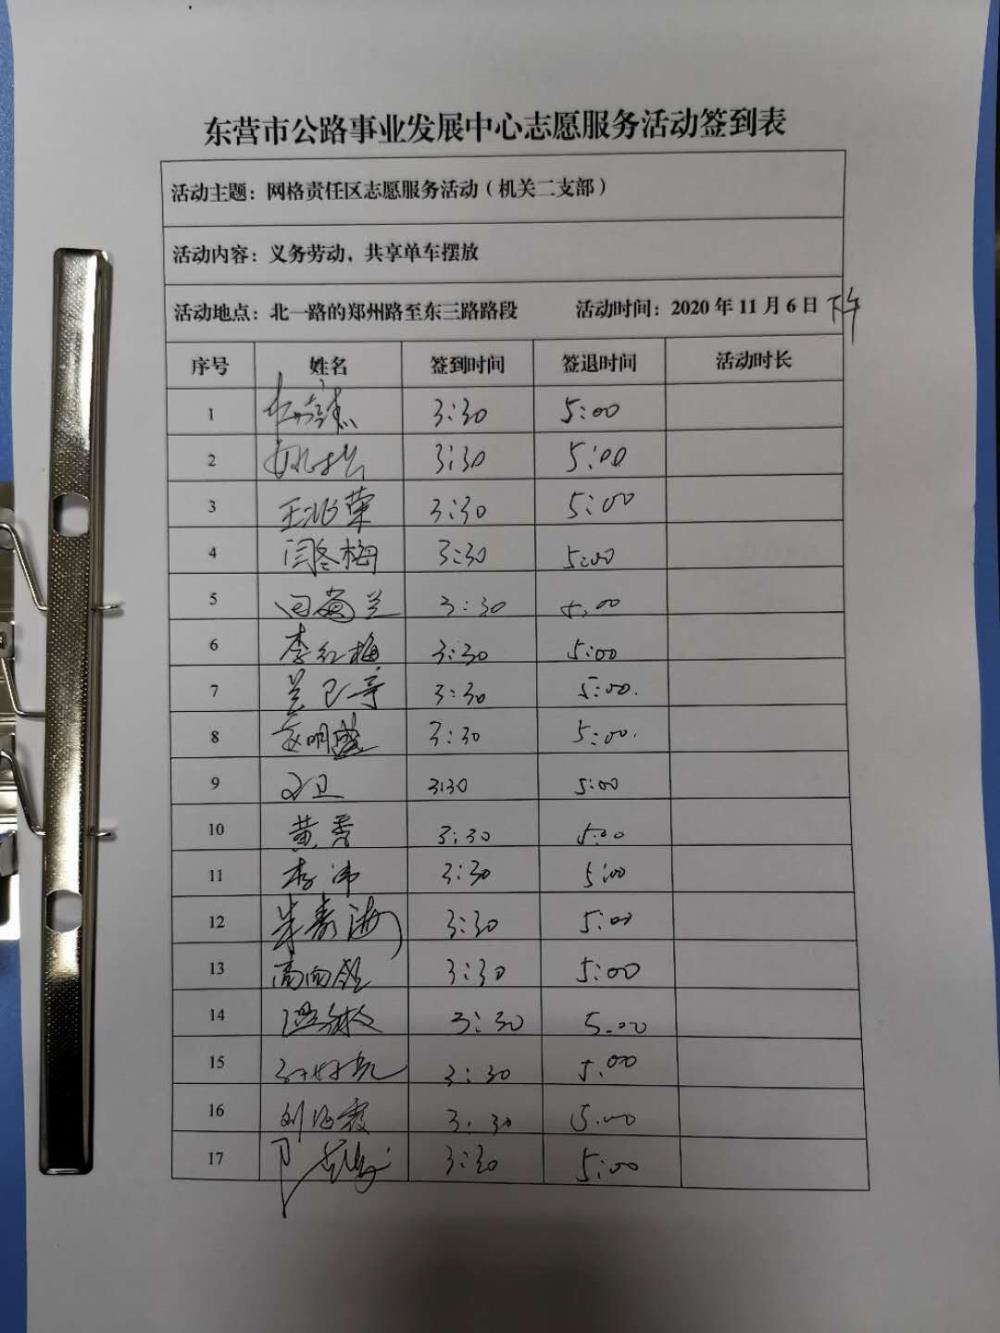 东营市公路事业发展中心志愿服务活动签到表
活动主题：网格责任区志愿服务活动（机关二支部）
活动内容：义务劳动，共享单车摆放
活动地点：北一路的郑州路至东三路路段 活动时间：2020 年 11 月 6 日 下午
序号 姓名 签到时间 签退时间 活动时长
1 3:30 5:00
2 3:30 5:00
3 王兆荣 3:30 5:00
4 闫冬梅 3:30 5:00
5 3:30 5:00
6 李红梅 3:30 5:00
7 3:30 5:00.
8 3:30 5:00.
9 3:30 5:00
10 黄秀 3:30 5:00
11 李冲 3:30 5:00
12 3:30 5:00
13 3:30 5:00
14 3:30 5:00
15 3:30 5:00
16 刘海霞 3:30 5:00
17 3:30 5:00